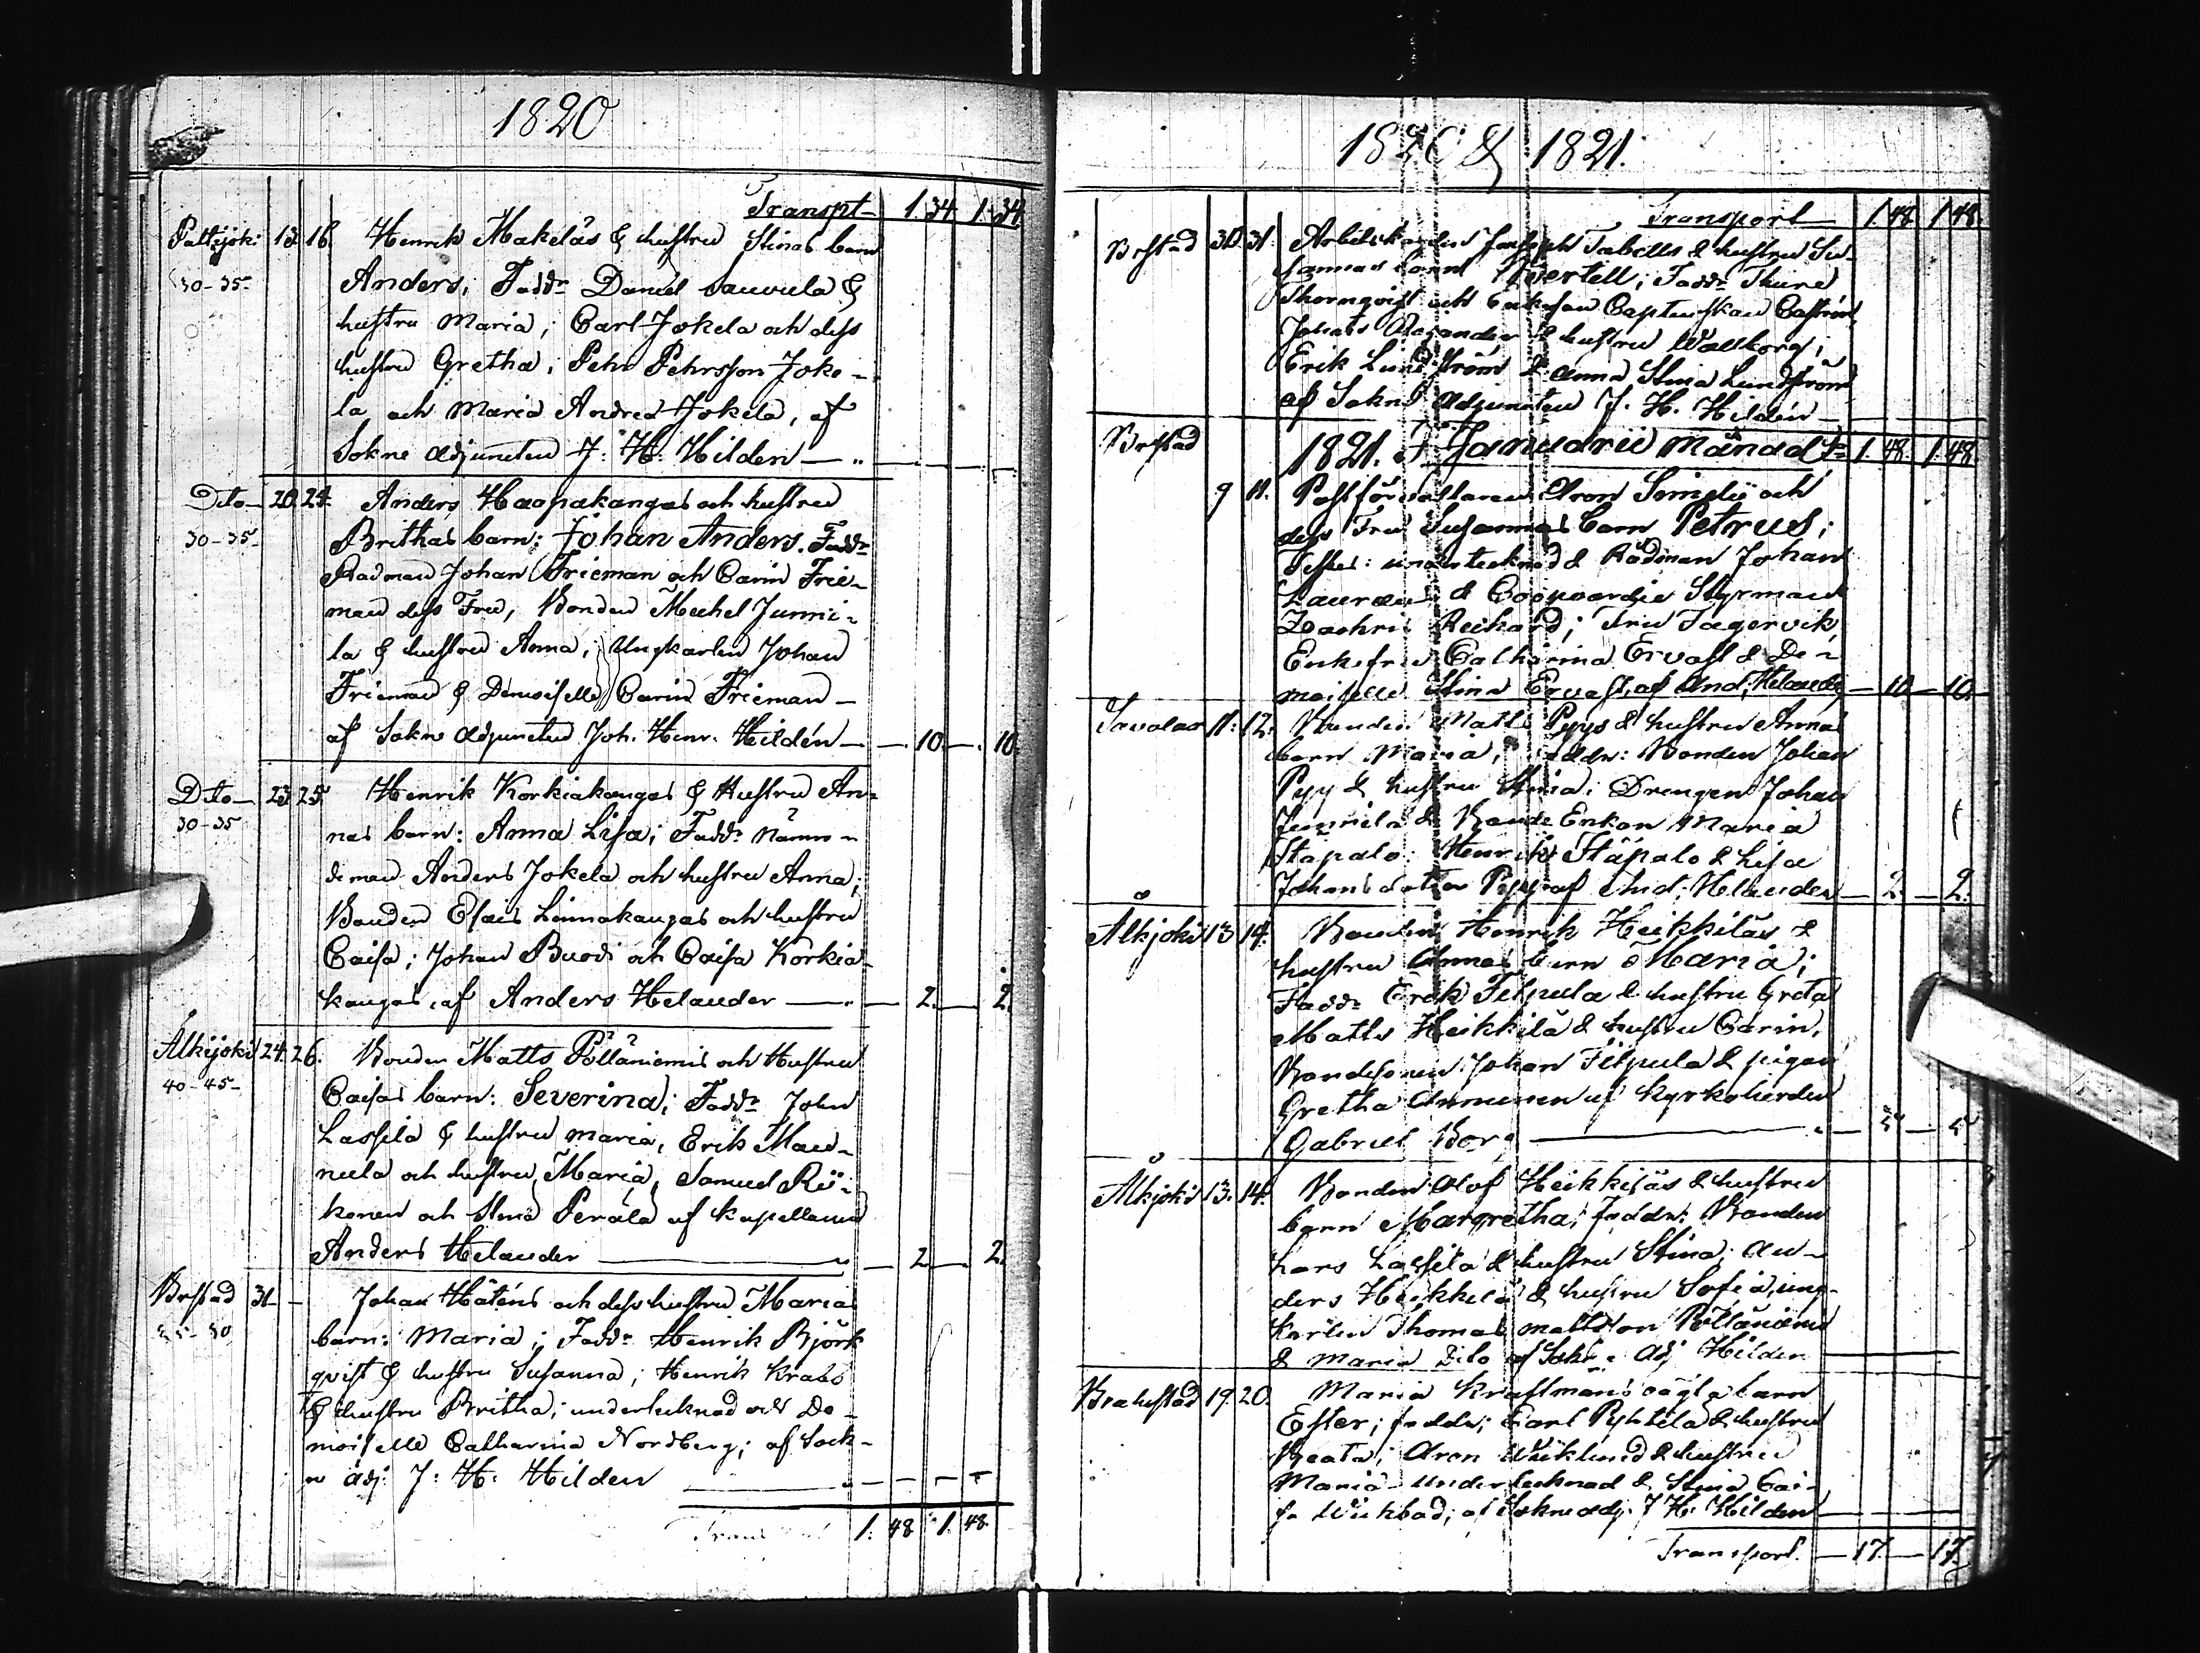 1820
Transpt 1. 34. 1. 34.
Pattijoki 13. 16. Henrik Makeläs & hustru Stinas barn
30-35- Anders; Faddr Daniel Sauvula &
hustru Maria; Carl Jokela och dess
hustru Gretha; Pehr Pehrsson Joke-
la och Maria Andred Jokela, af
Sokne Adjuncten J: H: Hilden
Dito 20. 24. Anders Haapakangas och hustru
30-35- Brithas barn: Johan Anders. Faddr
Radman Johan Frieman och Carin Frie-
man dess Fru, Bonden Michel Junni-
la & hustru Anna; Ungkarlen Johan
Frieman & Demoiselle Carin Frieman
af Sokne Adjuncten Joh. Henr. Hildén 10. 10.
Dito 23 25. Henrik Korkiakangas & Hustru An-
30-35 nas barn: Anna Lisa; Faddr Nämn-
deman Anders Jokela och hustru Anna;
Bonden Esais Linnakangas och hustru
Caisa; Johan Buodi och Caisa Korkia-
kangas, af Anders Helander 2. 2.
Ålkijoki 24. 26. Bonden Matts Pölläniemis och Hustru
40-45- Caisas barn: Severina; Faddr John
Lassila & hustru Maria, Erik Mau-
nula och hustru Maria, Samuel Rii-
konen och Stina Perälä af Kapellanen
Anders Helander 2. 2.
Brstad 31 Johan Häténs och dess hustru Marias
barn: Maria; Faddr Henrik Björk
qvist & hustru Susanna; Henrik Krabb
& hustru Britha; undertecknad och De-
moiselle Catharina Nordberg; af Sock-
n adj: J: H: Hilden
1. 48 1. 48.
1820 & 1821.
Transport 1 48. 1 48.
Brstad 30. 31. Joseph Tabells & hustru Su-
sannas barn Bertell; Faddr Thure
Thornqvist och Enkefru Captenskan Castrén,
Rajander & hustru Wallborg;
Erik Lundström & Anna Stina Lundström
af Sokne Adjuncten J. H. Hildén
Brstad 1821. Januarii Månad 1. 48. 1. 48
9 11. Postförvaltaren Aron Simelii och
dess Fru Susannas barn Petrus;
Testes: undertecknad & Rådman Johan
Lauræus & Coopvardie Styrman
Zachris Reichard; Fru Fagervik,
Enkefru Catharina Ervast & De-
moiselle Stina Ervast, af And. Helander 10 10.
Savolax 11. 12. Bonden Matts Pyys & hustru Annas
barn Maria; Faddr: Bonden Johan
Pyy & hustru Stina; Drengen Johan
Junnila & Bonde Enkan Maria
Stäpalo; Henrik Stäpalo & Lisa
Johansdotter Pyy, af And. Helander 2. 2.
Ålkjoki 13 14. Bonden Henrik Heikkiläs &
hustru Annas barn Maria;
Faddr Erik Filpula & hustru Greta
Matts Heikkilä & hustru Carin,
Bondesonen Johan Filpula & pigan
Gretha Annunen af Kyrkoherden
Gabriel Borg 5 5
Ålkjoki 13. 14. Bonden Olof Heikkiläs & hustrus
barn Margretha; Faddr: Bonden
Lars Lassila & hustru Stina; An-
ders Heikkilä & hustru Sofia, ung-
karlen Thomas Mattsson Pölläniemi
& Maria Dito af Sokne Adj Hilden
Brahestad 19. 20. Maria Kraftmans oägta barn
Ester; faddr; Carl Pyhtilä & hustru
Beata; Aron Wiklund & hustru
Maria undertecknad & Stina Cai-
sa Wikbad; af Sokne adj. J H: Hilden
Transport. 17. 17.